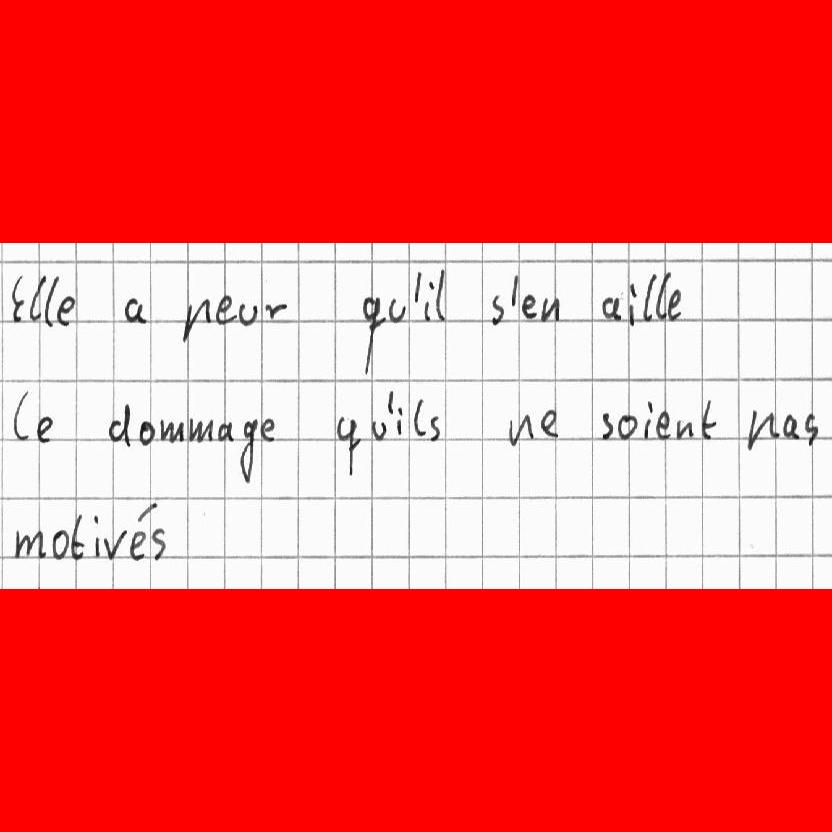 Elle a peur qu'il s'en aille
Ce dommage qu'ils ne soient pas
motivés